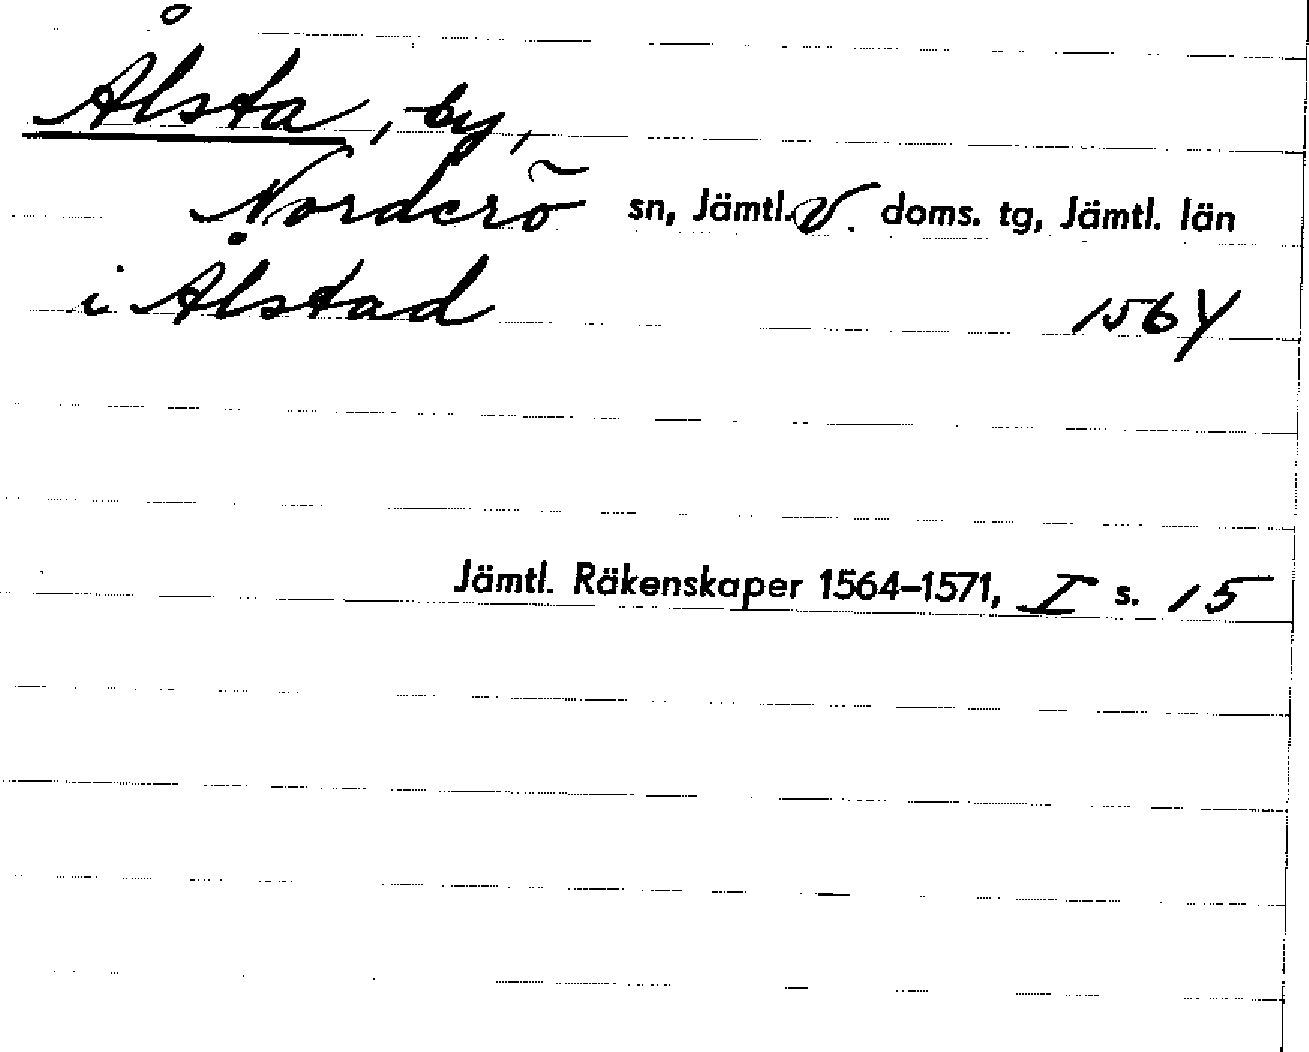 Ålsta, by,
Norderö sn, Jämtl. V. doms. tg, Jämtl. län
i Ålstad 1564
Jämtl. Räkenskaper 1564–1571, I s. 15